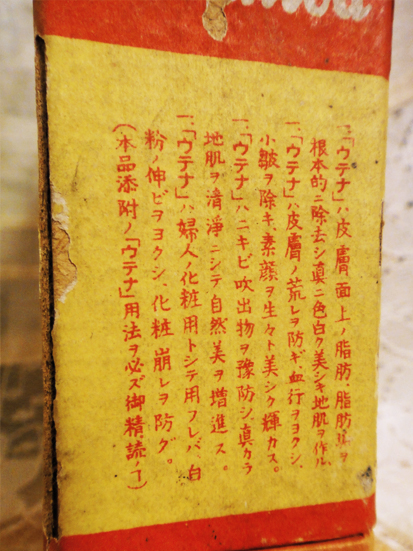 一、「ウテナ」ハ皮膚面上ノ脂肪、脂肪濁ヲ
根本的ニ除去シ真ニ色白ク美シキ地肌ヲ作ル、
一、「ウテナ」ハ皮膚ノ荒レヲ防ギ、血行ヲヨクシ、
小皺ヲ除キ、素顔ヲ生々ト美シク輝カス。
一、「ウテナ」ハニキビ吹出物ヲ豫防シ、真カラ
地肌ヲ清淨ニシテ自然美ヲ増進ス。
一、「ウテナ」ハ婦人ノ化粧用トシテ用フレバ、白
粉ノ伸ビヲヨクシ、化粧崩レヲ防グ。
(本品添附ノ「ウテナ」用法ヲ必ズ御精読ノ丁)